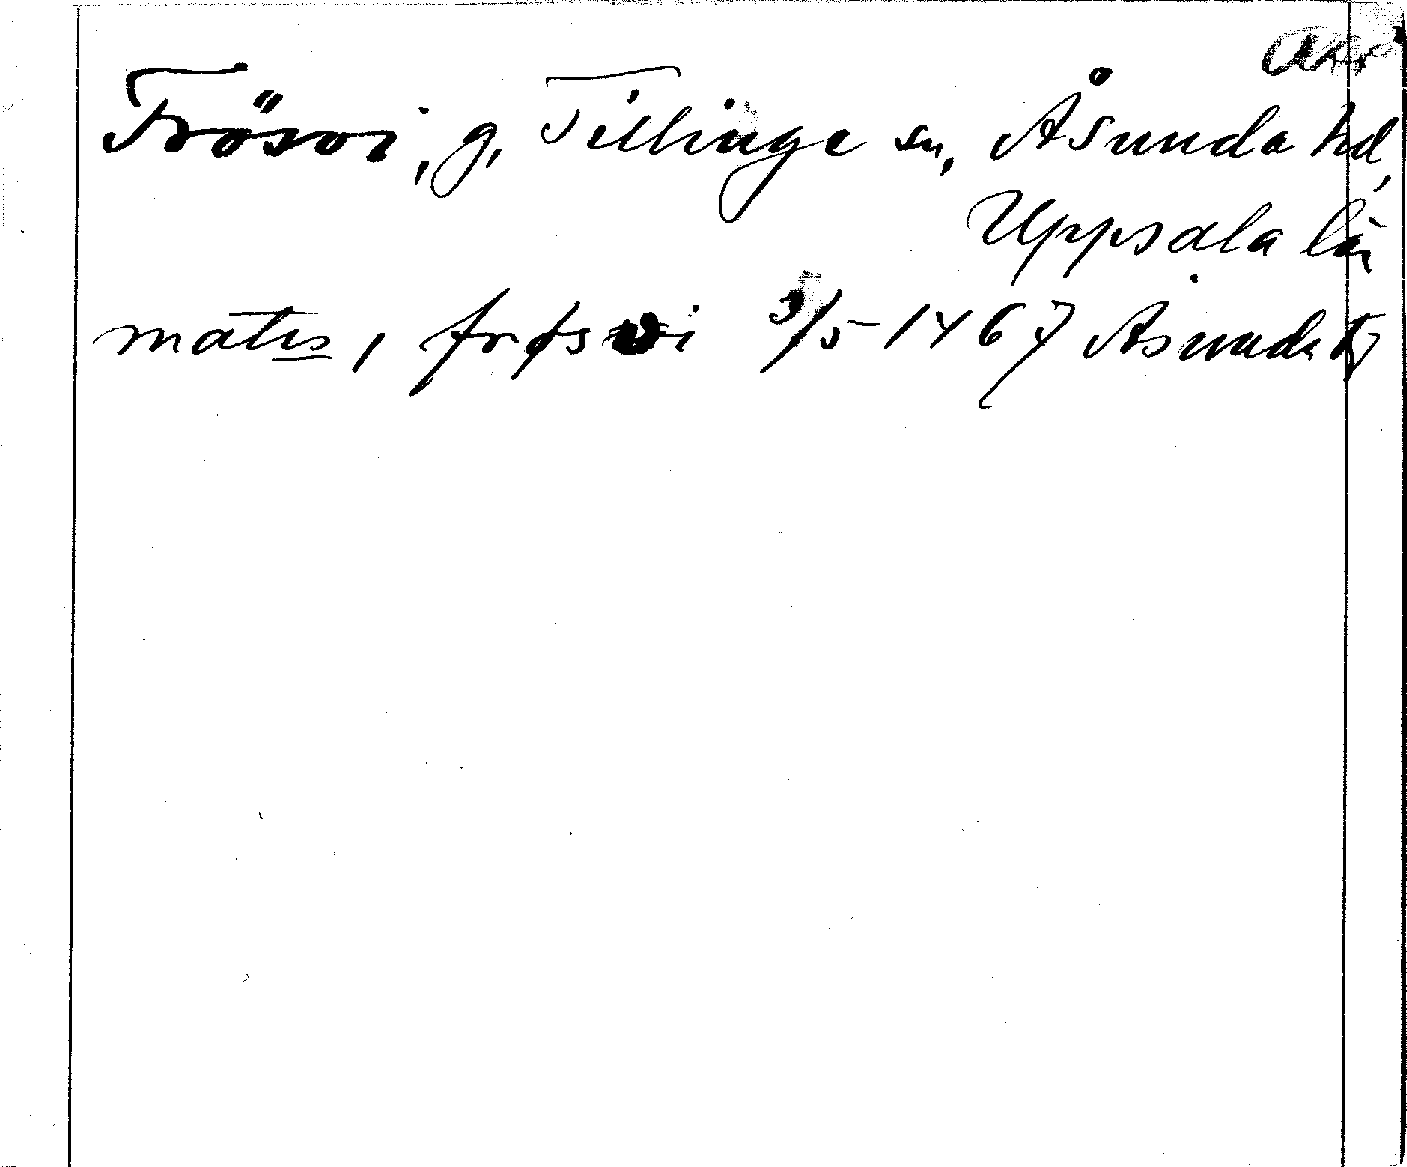 Frösvi, g, Tillinge sn, Åsunda hd,
Uppsala län
matis, frøswi 3/5 1467 Åsunda tg